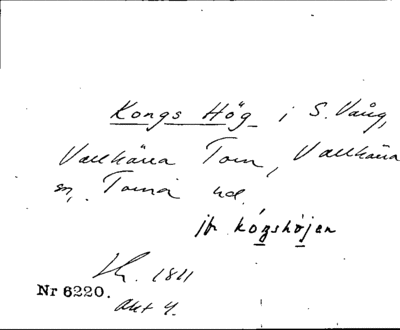 Kongs Hög i S. Vång,
Vallkärra Torn, Vallkärra
sn, Torna hd.
jfr kógshöjen
Lk. 1811
Nr 6220.
Akt 4.